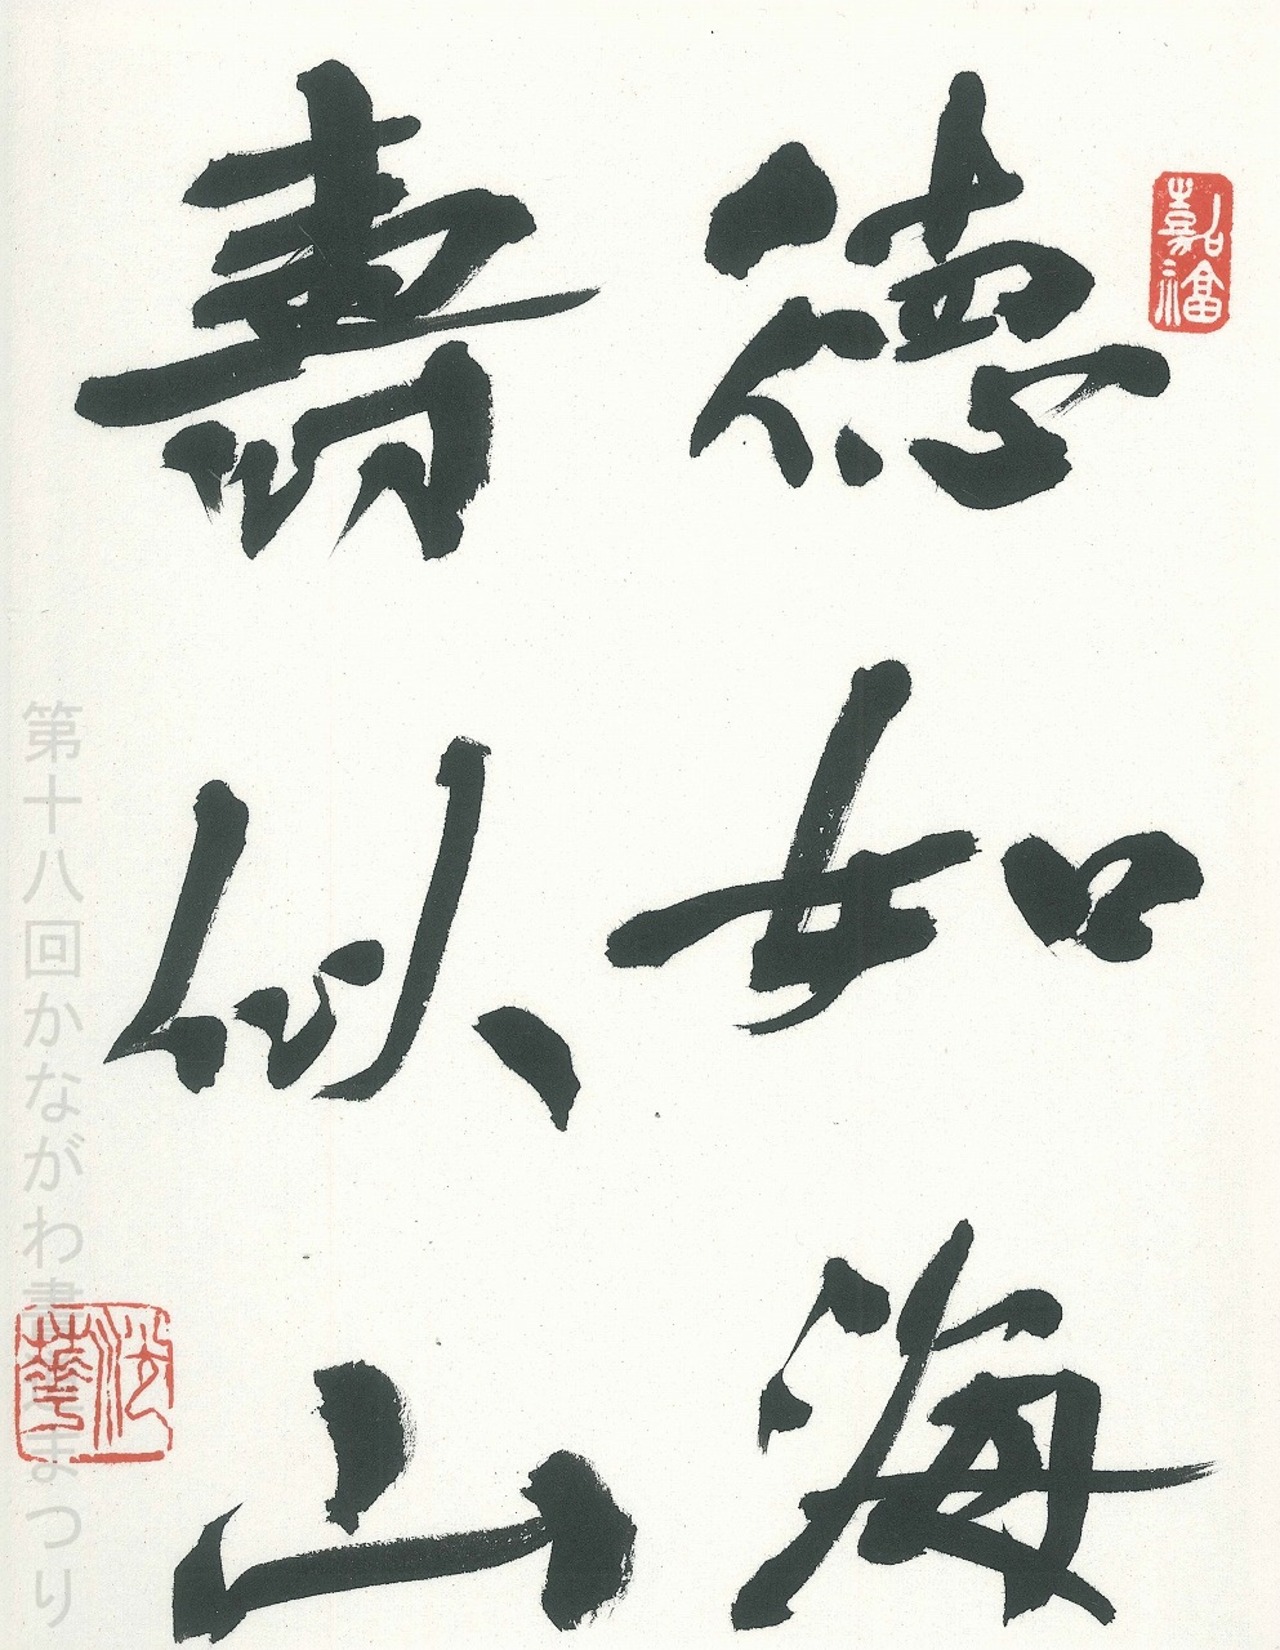 徳如海
壽似山
第十八回かながわ書道まつり